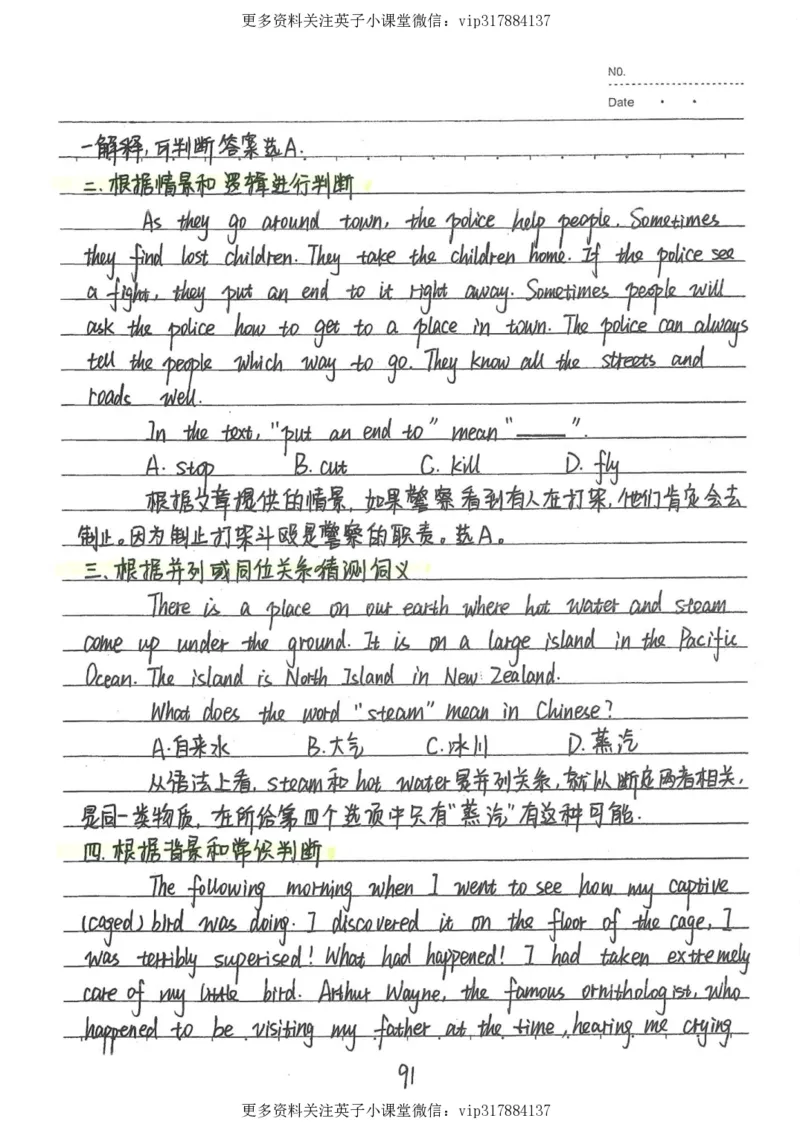 更多资料关注英子小课堂微信：vip317884137
NO.
Date
一解释，可判断答案选A.
二.根据情景和逻辑进行判断
As they go around town, the police help people. Sometimes
they find lost children. They take the children home. If the police see
a fight, they put an end to it right away. Sometimes people will
ask the police how to get to a place in town. The police can always
tell the people which way to go. They know all the streets and
roads well.
In the text, "put an end to" mean "____".
A. stop B. cut C. kill D. fly
根据文章提供的情景，如果警察看到有人在打架，他们肯定会去
制止。因为制止打架斗殴是警察的职责。选A。
三、根据并列或同位关系猜测词义
There is a place on our earth where hot water and steam
come up under the ground. It is on a large island in the Pacific
Ocean. The island is North Island in New Zealand.
What does the word "steam" mean in Chinese?
A.自来水 B.大气 C.冰川 D.蒸汽
从语法上看，steam和hot water是并列关系，就以断定两者相关，
是同一类物质，在所给第四个选项中只有"蒸汽"有这种可能.
四.根据背景和常识判断
The following morning when I went to see how my captive
(caged) bird was doing. I discovered it on the floor of the cage, I
was terribly superised! What had happened! I had taken extremely
care of my little bird. Arthur Wayne, the famous ornithologist, who
happened to be visiting my father at the time, hearing me crying
91
更多资料关注英子小课堂微信：vip317884137